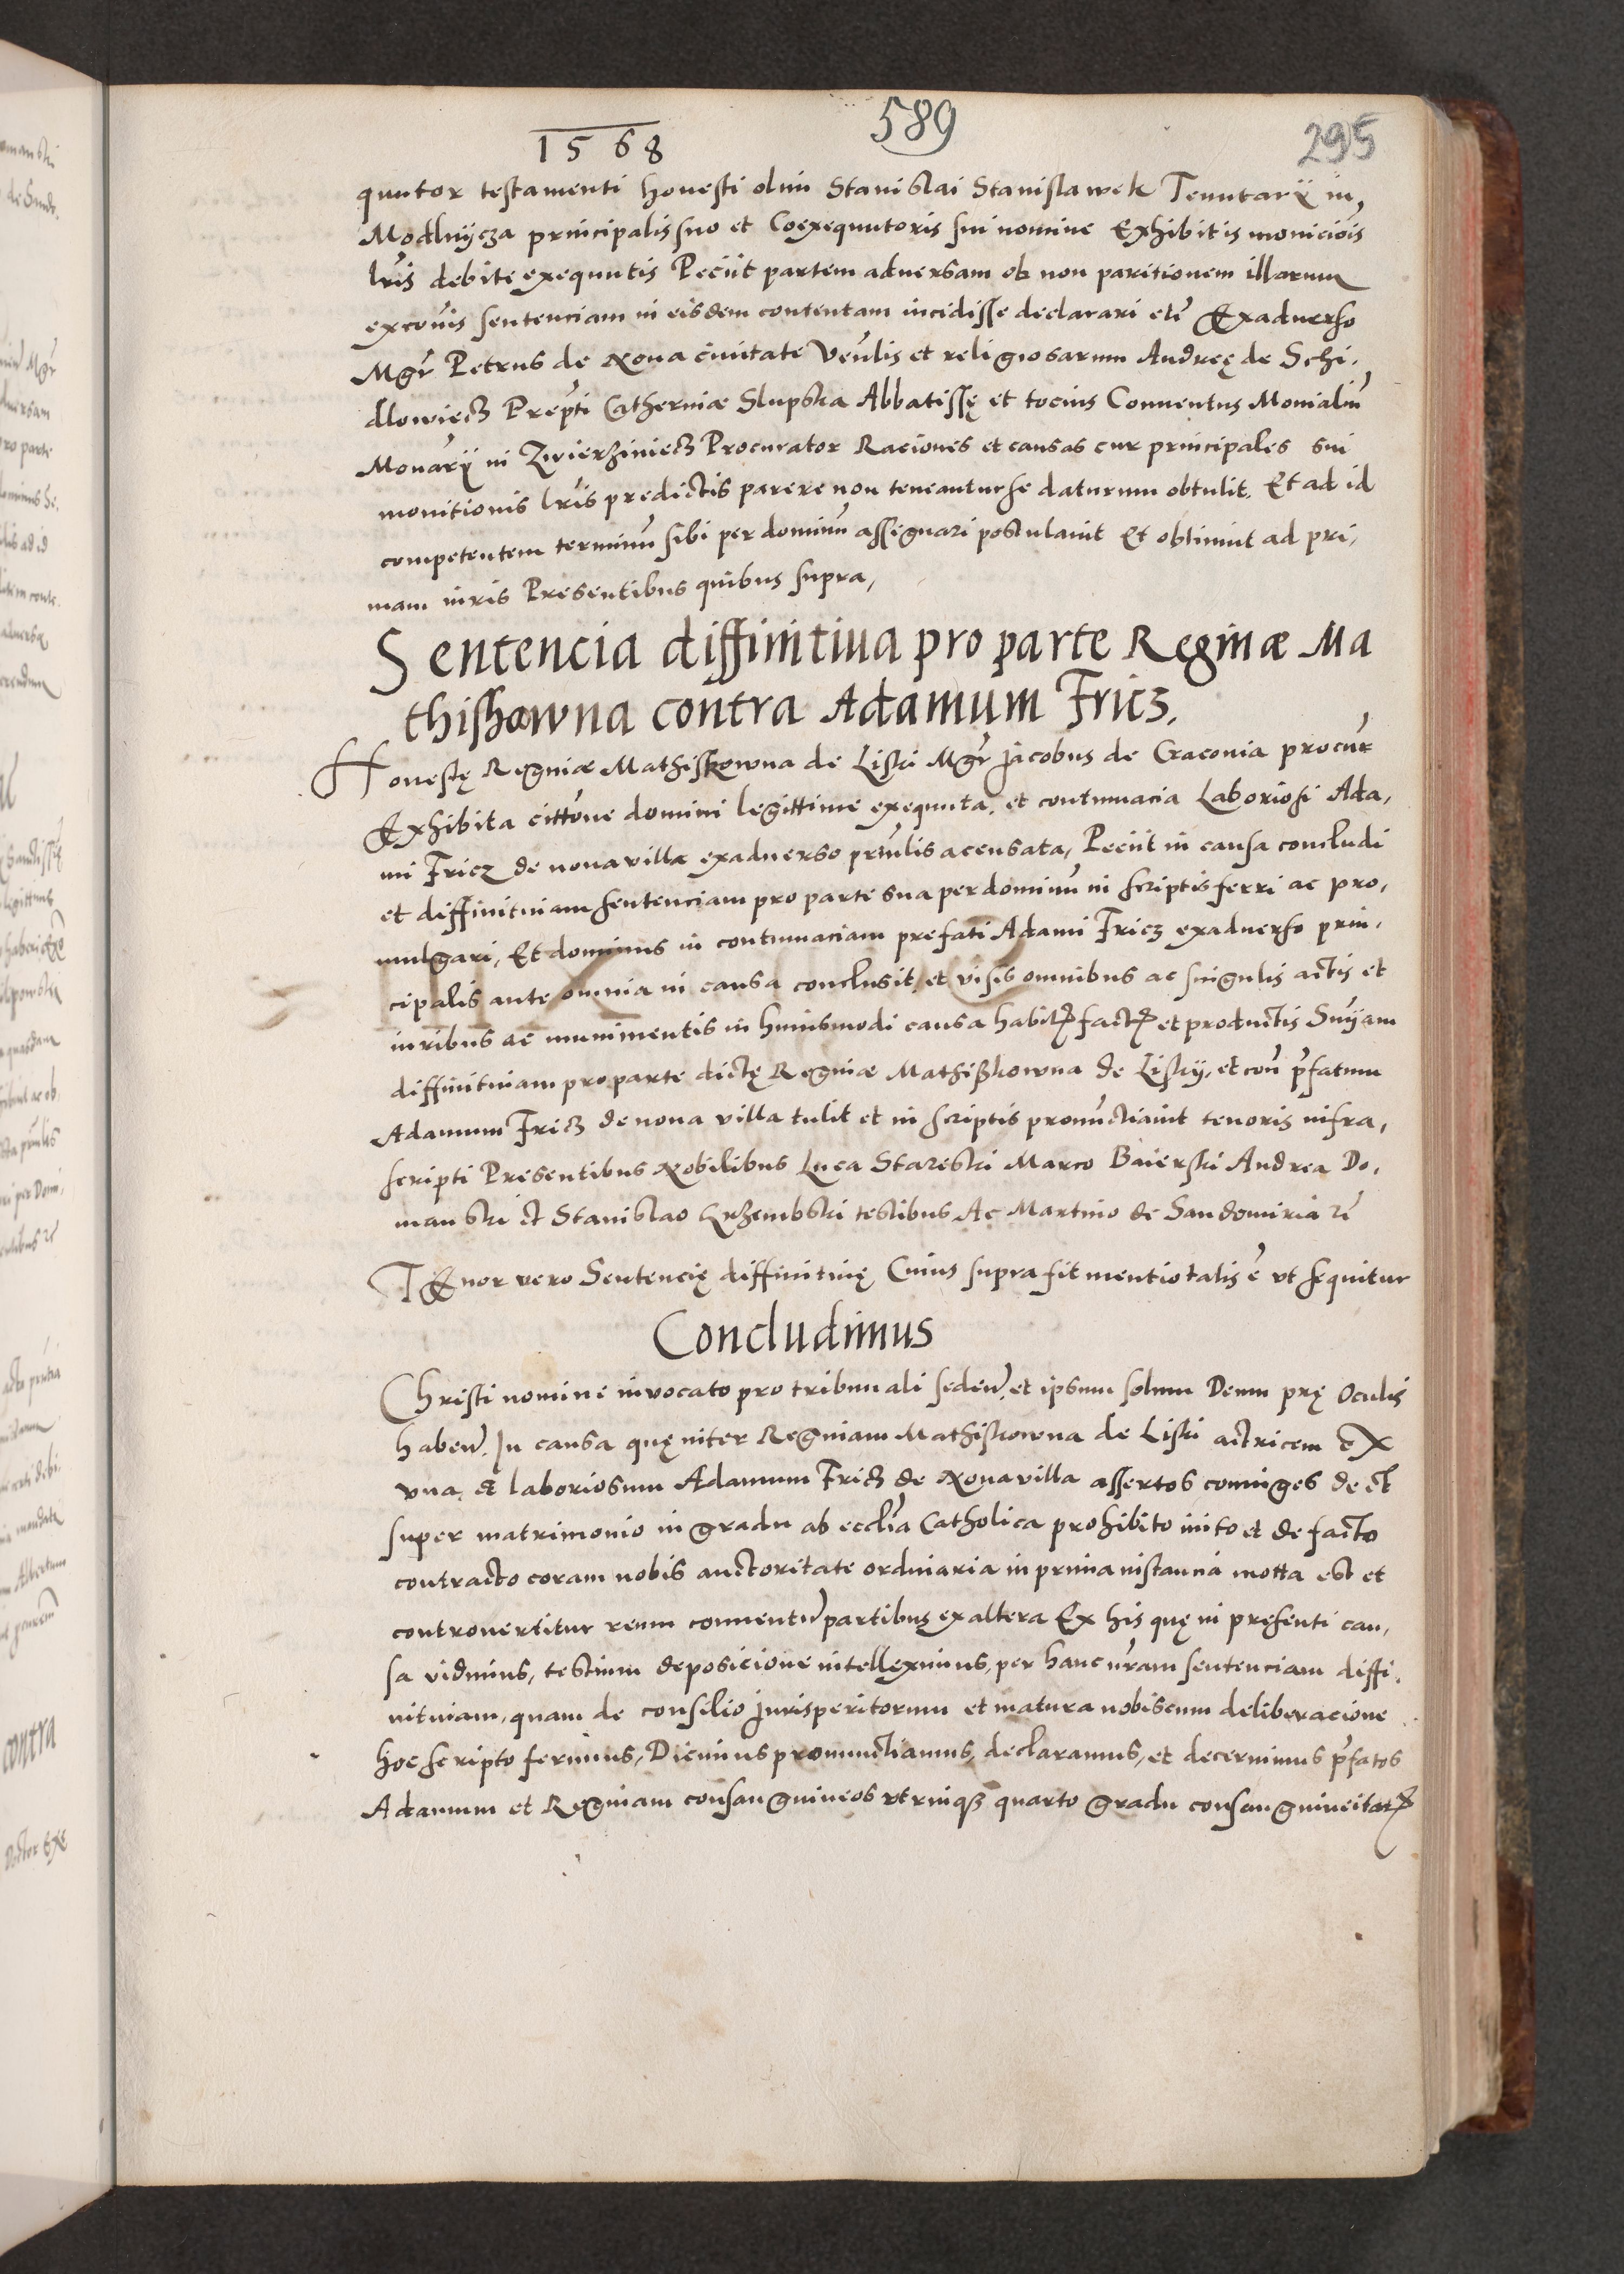 589
295
1568
quutor testamenti honesti olim Stanislai Stanislawek Tenutarÿ in,
Modlnÿcza principalis suo et Coexequutoris sui nomine Exhibitis monicioīs
lrīs debite exequutis Peciit partem aduersam ob non paritionem illarum
excoīs sentenciam in eisdem contentam incidisse declarari etc̄ Exaduerso
Mgr̄ Petrus de Noua ciuitate Ven̄lis et religiosarum Andreę de Schi,
dlowiecz Prep̄ti Catherinæ Slupska Abbatissę et tocius Conuentus Monialiū
Monar̄ÿ in Zwierziniecz Procurator Raciones et causas cur principales sui
monitionis lrīs predictis parere non teneantur se daturum obtulit. Et ad id
competentem terminū sibi per dominū assignari postulauit Et obtinuit ad pri,
mam iuris Presentibus quibus supra,
Sentencia diffinitiua pro parte Reginæ Ma
thiskowna contra Adamum Fricz.
Honestę Reginæ Mathiskowna de Liski Mgr̄ Jacobus de Cracouia procur̄
Exhibita citt̄one domini legittime exequuta, et contumacia Laboriosi Ada,
mi Fricz de noua villa exaduerso prin̄lis accusata, Peciit in causa concludi
et diffinitiuam sentenciam pro parte sua per dominū in scriptis ferri ac pro,
mulgari, Et dominus in contumaciam prefati Adami Fricz exaduerso prin,
cipalis ante omnia in causa conclusit, et visis omnibus ac singulis actis et
iuribus ac munimentis in huiusmodi causa habitꝭ factꝭ et productis Sn̄iam
diffinitiuam pro parte dictę Reginæ Mathiskowna de Liskÿ, et con̄ p̄fatum
Adamum Fricz de noua villa tulit et in scriptis pronūctiauit tenoris infra,
scripti Presentibus Nobilibus Luca Starski Marco Baierski Andrea Do,
manski et Stanislao Krzembski testibus Ac Martino de Sandomiria r̄c
TEnor vero Sentencię diffinitiuę Cuius supra fit mentio talis ē vt sequitur
Concludimus
Christi nomine inuocato pro tribunali seden̄, et ipsum solum Deum prę oculis
haben̄. In causa quę inter Reginam Mathiskowna de Liski actricem eX
vna, et laboriosum Adamum Fricz de Noua villa assertos coniuges de et
super matrimonio in gradu ab eccl̄ia Catholica prohibito inito et de facto
contracto coram nobis auctoritate ordinaria in prima instancia motta est et
controuertitur reum conuentū partibus ex altera Ex his quę in presenti cau,
sa vidimus, testium deposicione intelleximus, per hanc nr̄am sentenciam diffi,
nitiuam, quam de consilio jurisperitorum et matura nobiscum deliberacione
hoc scripto ferimus, Dicimus pronunctiamus, declaramus, et decernimus p̄fatos
Adamum et Reginam consanguineos vtrinqꝫ quarto gradu consanguineitatꝭ